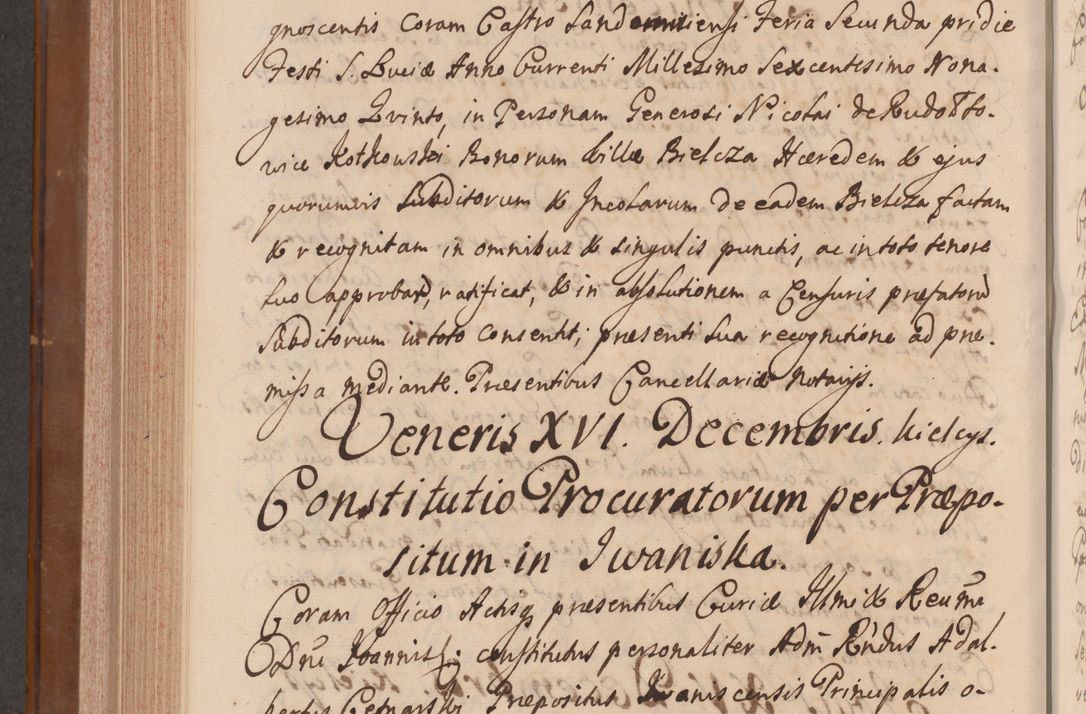 gnoscentis Coram Castro Sandomiriensi Feria Secunda pridie
Festi S. Luciæ Anno Currenti Millesimo Sexcentesimo Nona-
gesimo Qvinto, in Personam Generosi Nicolai de Rudołto-
wice Kotkowski Bonorum Villæ Bielcza Hæredem & ejus
quorumvis Subditorum & Incolarum de eadem Bielcza factam
& recognitam in omnibus & singulis punctis, ac in toto tenore
suo approbat, ratificat, & in absolutionem a Censuris præfatorũ
Subditorum in toto consentit, præsenti sua recognitione ad præ-
missa mediante. Præsentibus Cancellariæ Notarijs.
Veneris XVI. Decembris. Kielcys.
Constitutio Procuratorum per Præpo-
situm in Iwaniska.
Coram Officio Actisq; præsentibus Curiæ Illmi & Reum̃i
Dñi Joannis constitutus personaliter Adm̃ R̃ndus Adal-
bertus Præpositus Iwaniscensis Principalis o-